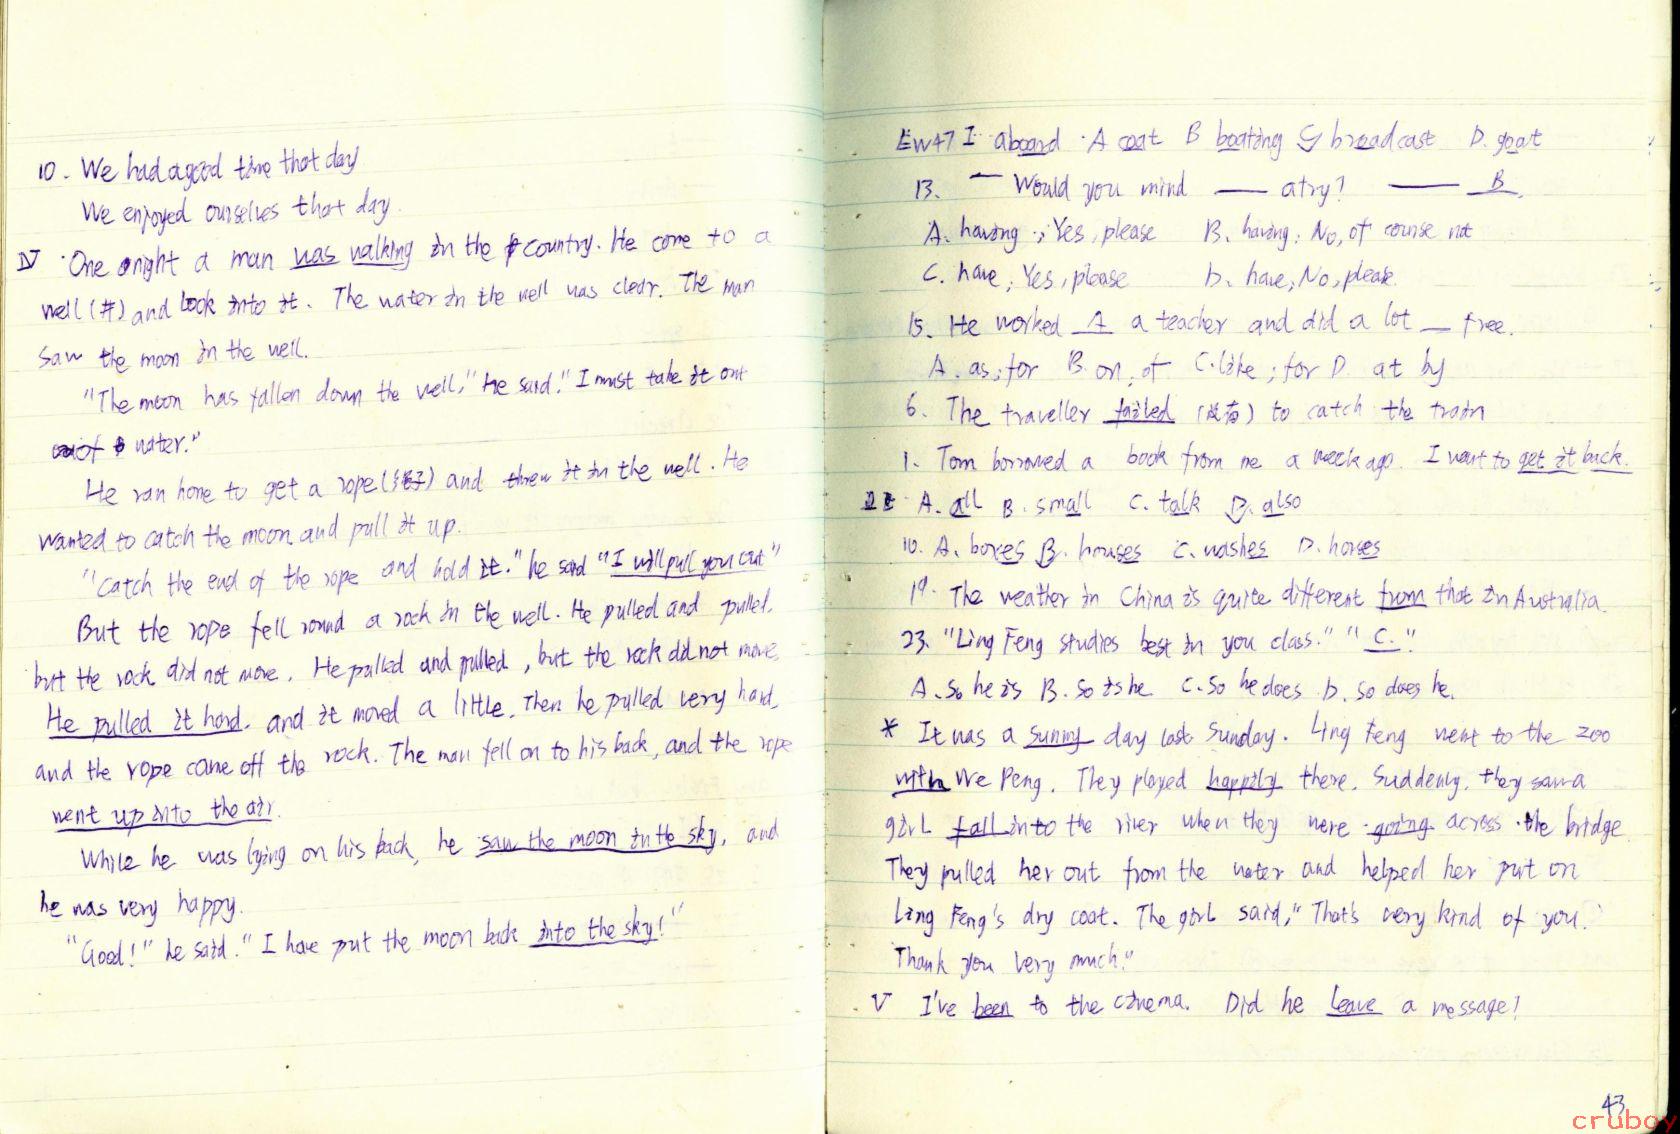 10. We had a good time that day
We enjoyed ourselves that day.
IV One night a man was walking in the country. He come to a
well (井) and look into it. The water in the well was clear. The man
saw the moon in the well.
"The moon has fallen down the well," he said. "I must take it out
of water."
He ran home to get a rope (绳子) and threw it in the well. He
wanted to catch the moon and pull it up.
"Catch the end of the rope and hold it." he said "I will pull you out"
But the rope fell round a rock in the well. He pulled and pulled,
but the rock did not move. He pulled and pulled, but the rock did not move,
He pulled it hard. and it moved a little. Then he pulled very hard,
and the rope came off the rock. The man fell on to his back, and the rope
went up into the air.
While he was lying on his back, he saw the moon in the sky, and
he was very happy.
"Good!" he said. "I have put the moon back into the sky!"
EW47 I aboard A coat B boating C broadcast D. goat
13. — Would you mind —— a try? —— B.
A. having; Yes, please B. having; No, of course not
C. have; Yes, please D. have; No, please.
15. He worked A a teacher and did a lot — free.
A. as; for B. on; of C. like; for D. at by
6. The traveller failed (没有) to catch the train
1. Tom borrowed a book from me a week ago. I want to get it back.
II A. all B. small C. talk D. also
10. A. boxes B. houses C. washes D. horses
19. The weather in China is quite different from that in Australia.
23. "Ling Feng studies best in you class." " C. "
A. So he is B. So is he C. So he does D. So does he.
* It was a sunny day last Sunday. Ling Feng went to the zoo
with We Peng. They played happily there. Suddenly, they saw a
girl fall into the river when they were going across the bridge.
They pulled her out from the water and helped her put on
Ling Feng's dry coat. The girl said, "That's very kind of you.
Thank you very much."
V I've been to the cinema. Did he leave a message?
43
cruboy